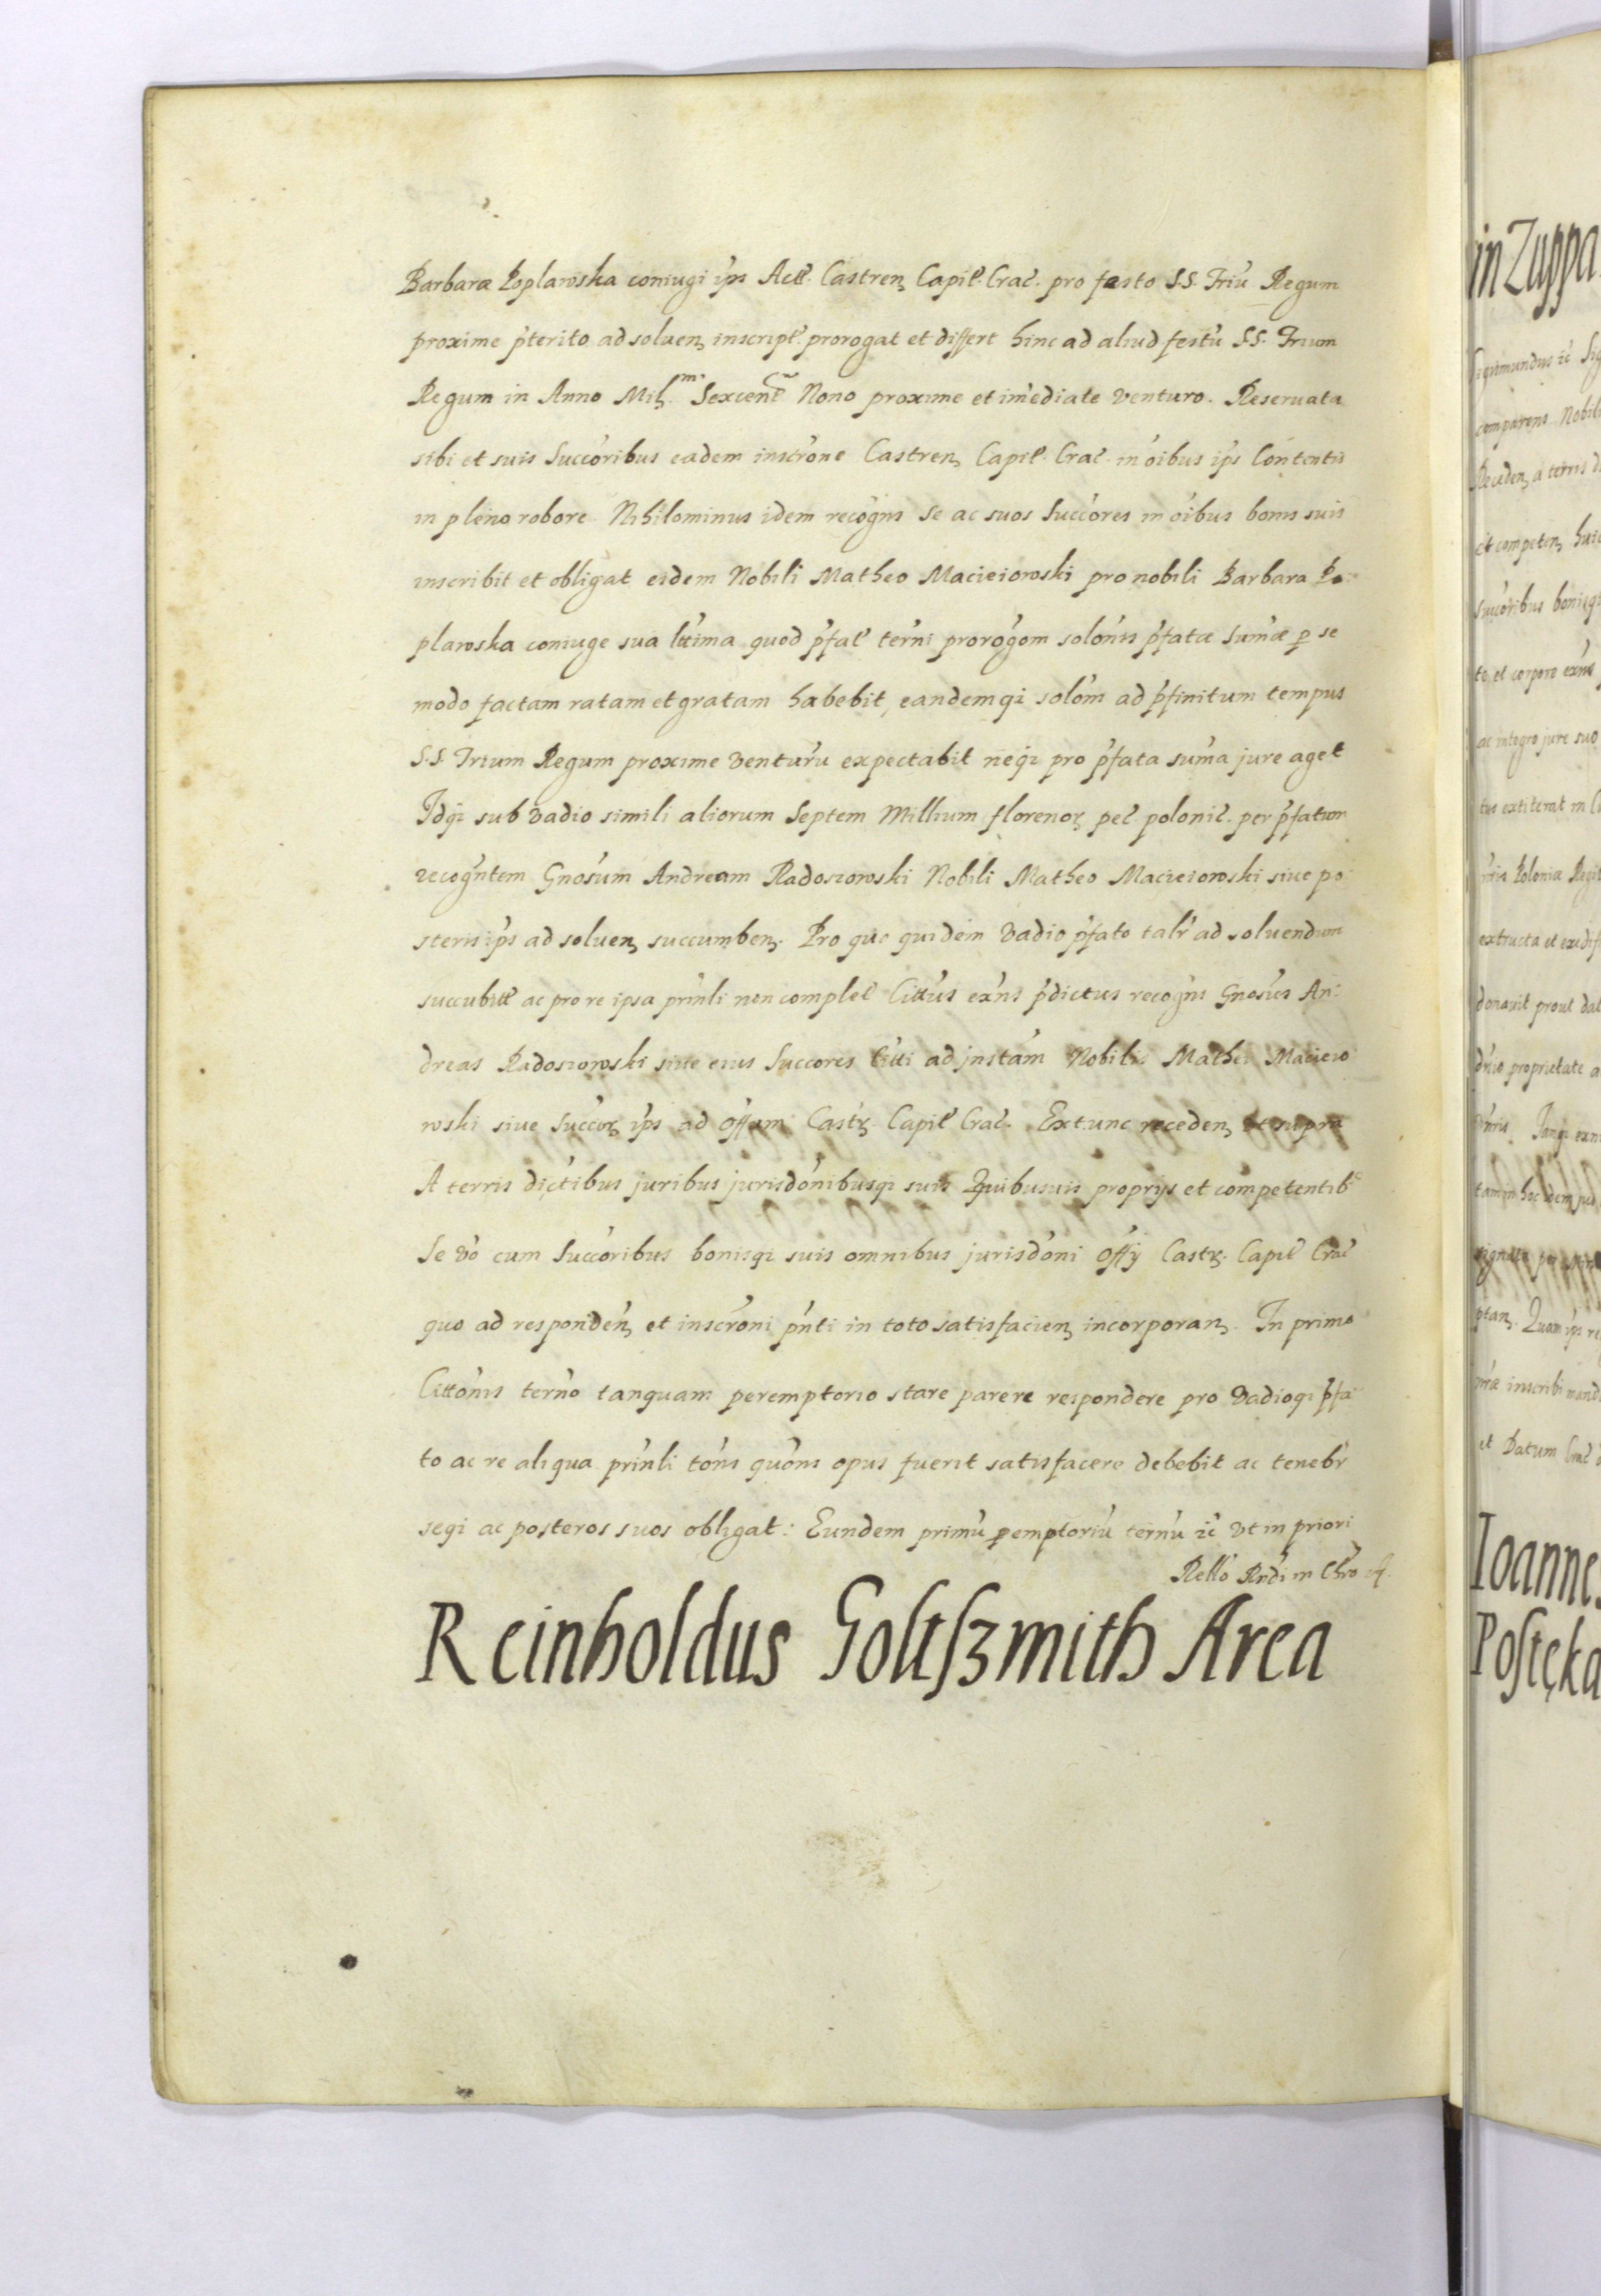 Barbaræ Poplawska coniugi ips Actt. Castren, Capit. Crac. pro festo S.S. Triũ Regum
proxime p̃terito ad soluen, inscript. prorogat et differt hinc ad aliud festũ S.S. Trium
Regum in Anno Mil. m̃ Sexcent Nono proxime et im̃ediate venturo. Reseruata
sibi et suis Succõribus eadem inscr̃one Castren, Capit. Crac. in õibus ips Contentis
in pleno robore. Nihilominus idem recogñs se ac suos Succõres in õibus bonis suis
inscribit et obligat eidem Nobili Matheo Macieiowski pro nobili Barbara Po:
plawska coniuge sua lttima quod p̃fat ter̃ni prorogõm solõnis p̃fatæ Sum̃æ p se
modo factam ratam et gratam habebit, eandemqi solõm ad p̃finitum tempus
S.S. Trium Regum proxime venturũ expectabit neqi pro p̃fata sum̃a jure aget
Idqi sub vadio simili aliorum Septem Millium florenor, pec polonic. per p̃fatum
recogñtem Gnosũm Andream Radoszowski Nobili Matheo Macieiowski siue po
steris ips ad soluen, succumben,. Pro quo quidem vadio p̃fato talr ad soluendum
succubitt ac pro re ipsa prĩnli non complet Cittũs exñs p̃dictus recogñs Gnosũs An:
dreas Radoszowski siue eius Succores Citti ad jnstãm Nobilis Mathei Macieio
wski siue Succor, ips ad Offam Castr. Capit Crac. Extunc receden, vt supra
A terris dictĩbus juribus jurisdõnibusqi suis Quibusuis proprijs et competentib9
Se vo cum Succõribus bonisqi suis omnibus jurisdõni Offy Castr. Capit Crac
quo ad responden, et inscrõni pñti in toto satisfacien, incorporan,. In primo
Cittõnis terño tanquam peremptorio stare parere respondere pro vadioqi p̃fa
to ac re aliqua prĩnli tõns quõns opus fuerit satisfacere debebit ac tenebr
seqi ac posteros suos obligat: Eundem primũ pemptoriũ terñu zc vt in priori
Rello Rndi in Chro
Reinholdus Goltſzmith Area
in Zuppa
Sigismundus zc
comparens Nobili
Receden, a terris
et competen,
Succõribus bonisqi
to, et corpore exñs
ac integro jure suo
tus extiterat in
Poloniæ
extructa et
donauit prout
proprietate a
tam in hoc
Quam ips
inscribi
et Datum Crac
Ioannes
Poſtęka